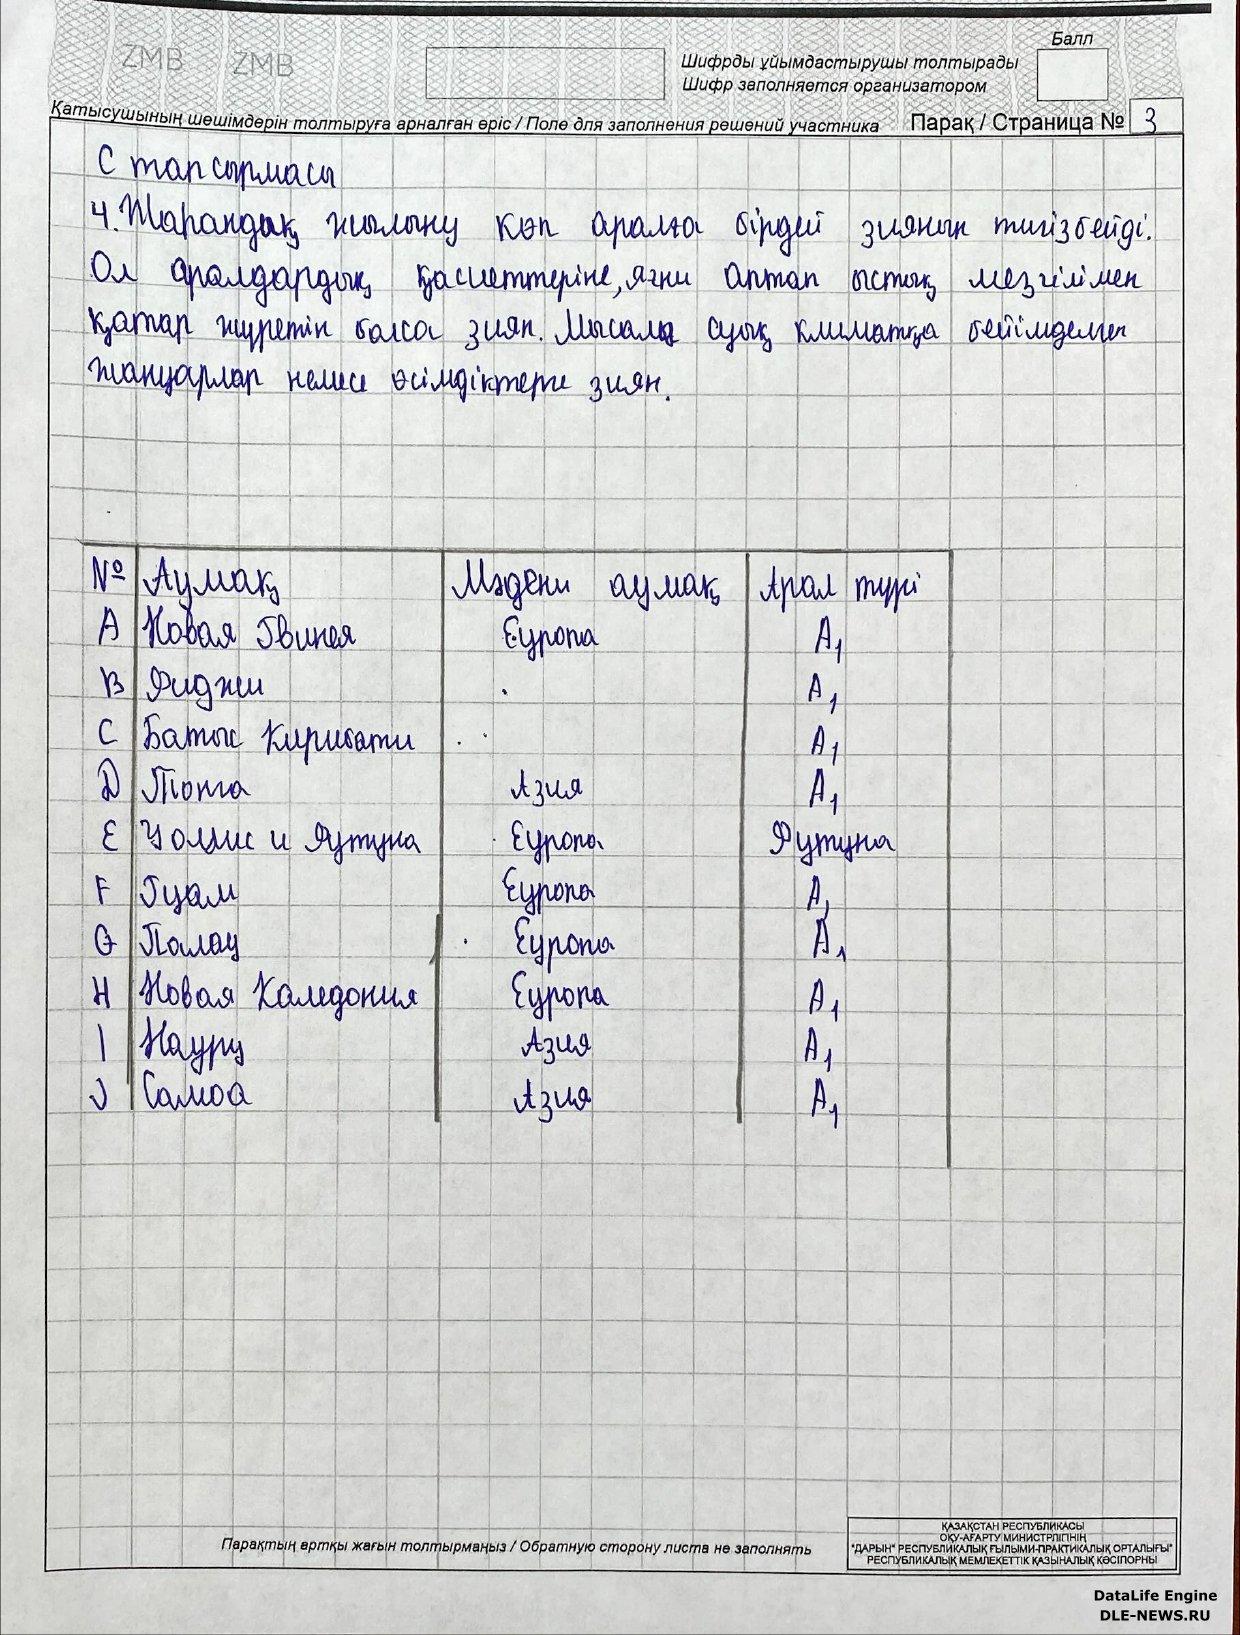 ZMB ZMB
Балл
Шифрды ұйымдастырушы толтырады
Шифр заполняется организатором
Қатысушының шешімдерін толтыруға арналған өріс / Поле для заполнения решений участника Парақ / Страница № 3
С тапсырмасы
4. Жарандық жылыну көп аралға бірдей зиянын тигізбейді.
Ол аралдардың қасиеттеріне, яғни аптап ыстық мезгілімен
қатар жүретін болса зиян. Мысалы суық климатқа бейімделген
жануарлар немесе өсімдіктерге зиян.
№ Аумақ Мәдени аумақ Арал түрі
A Новая Гвинея Еуропа А1
B Фиджи А1
C Батыс Кирибати А1
D Тонга Азия А1
E Уоллис и Футуна Еуропа Футуна
F Гуам Еуропа А1
G Палау Еуропа А1
H Новая Каледония Еуропа А1
I Науру Азия А1
J Самоа Азия А1
Парақтың артқы жағын толтырмаңыз / Обратную сторону листа не заполнять
ҚАЗАҚСТАН РЕСПУБЛИКАСЫ
ОҚУ-АҒАРТУ МИНИСТРЛІГІНІҢ
"ДАРЫН" РЕСПУБЛИКАЛЫҚ ҒЫЛЫМИ-ПРАКТИКАЛЫҚ ОРТАЛЫҒЫ"
РЕСПУБЛИКАЛЫҚ МЕМЛЕКЕТТІК ҚАЗЫНАЛЫҚ КӘСІПОРНЫ
DataLife Engine
DLE-NEWS.RU